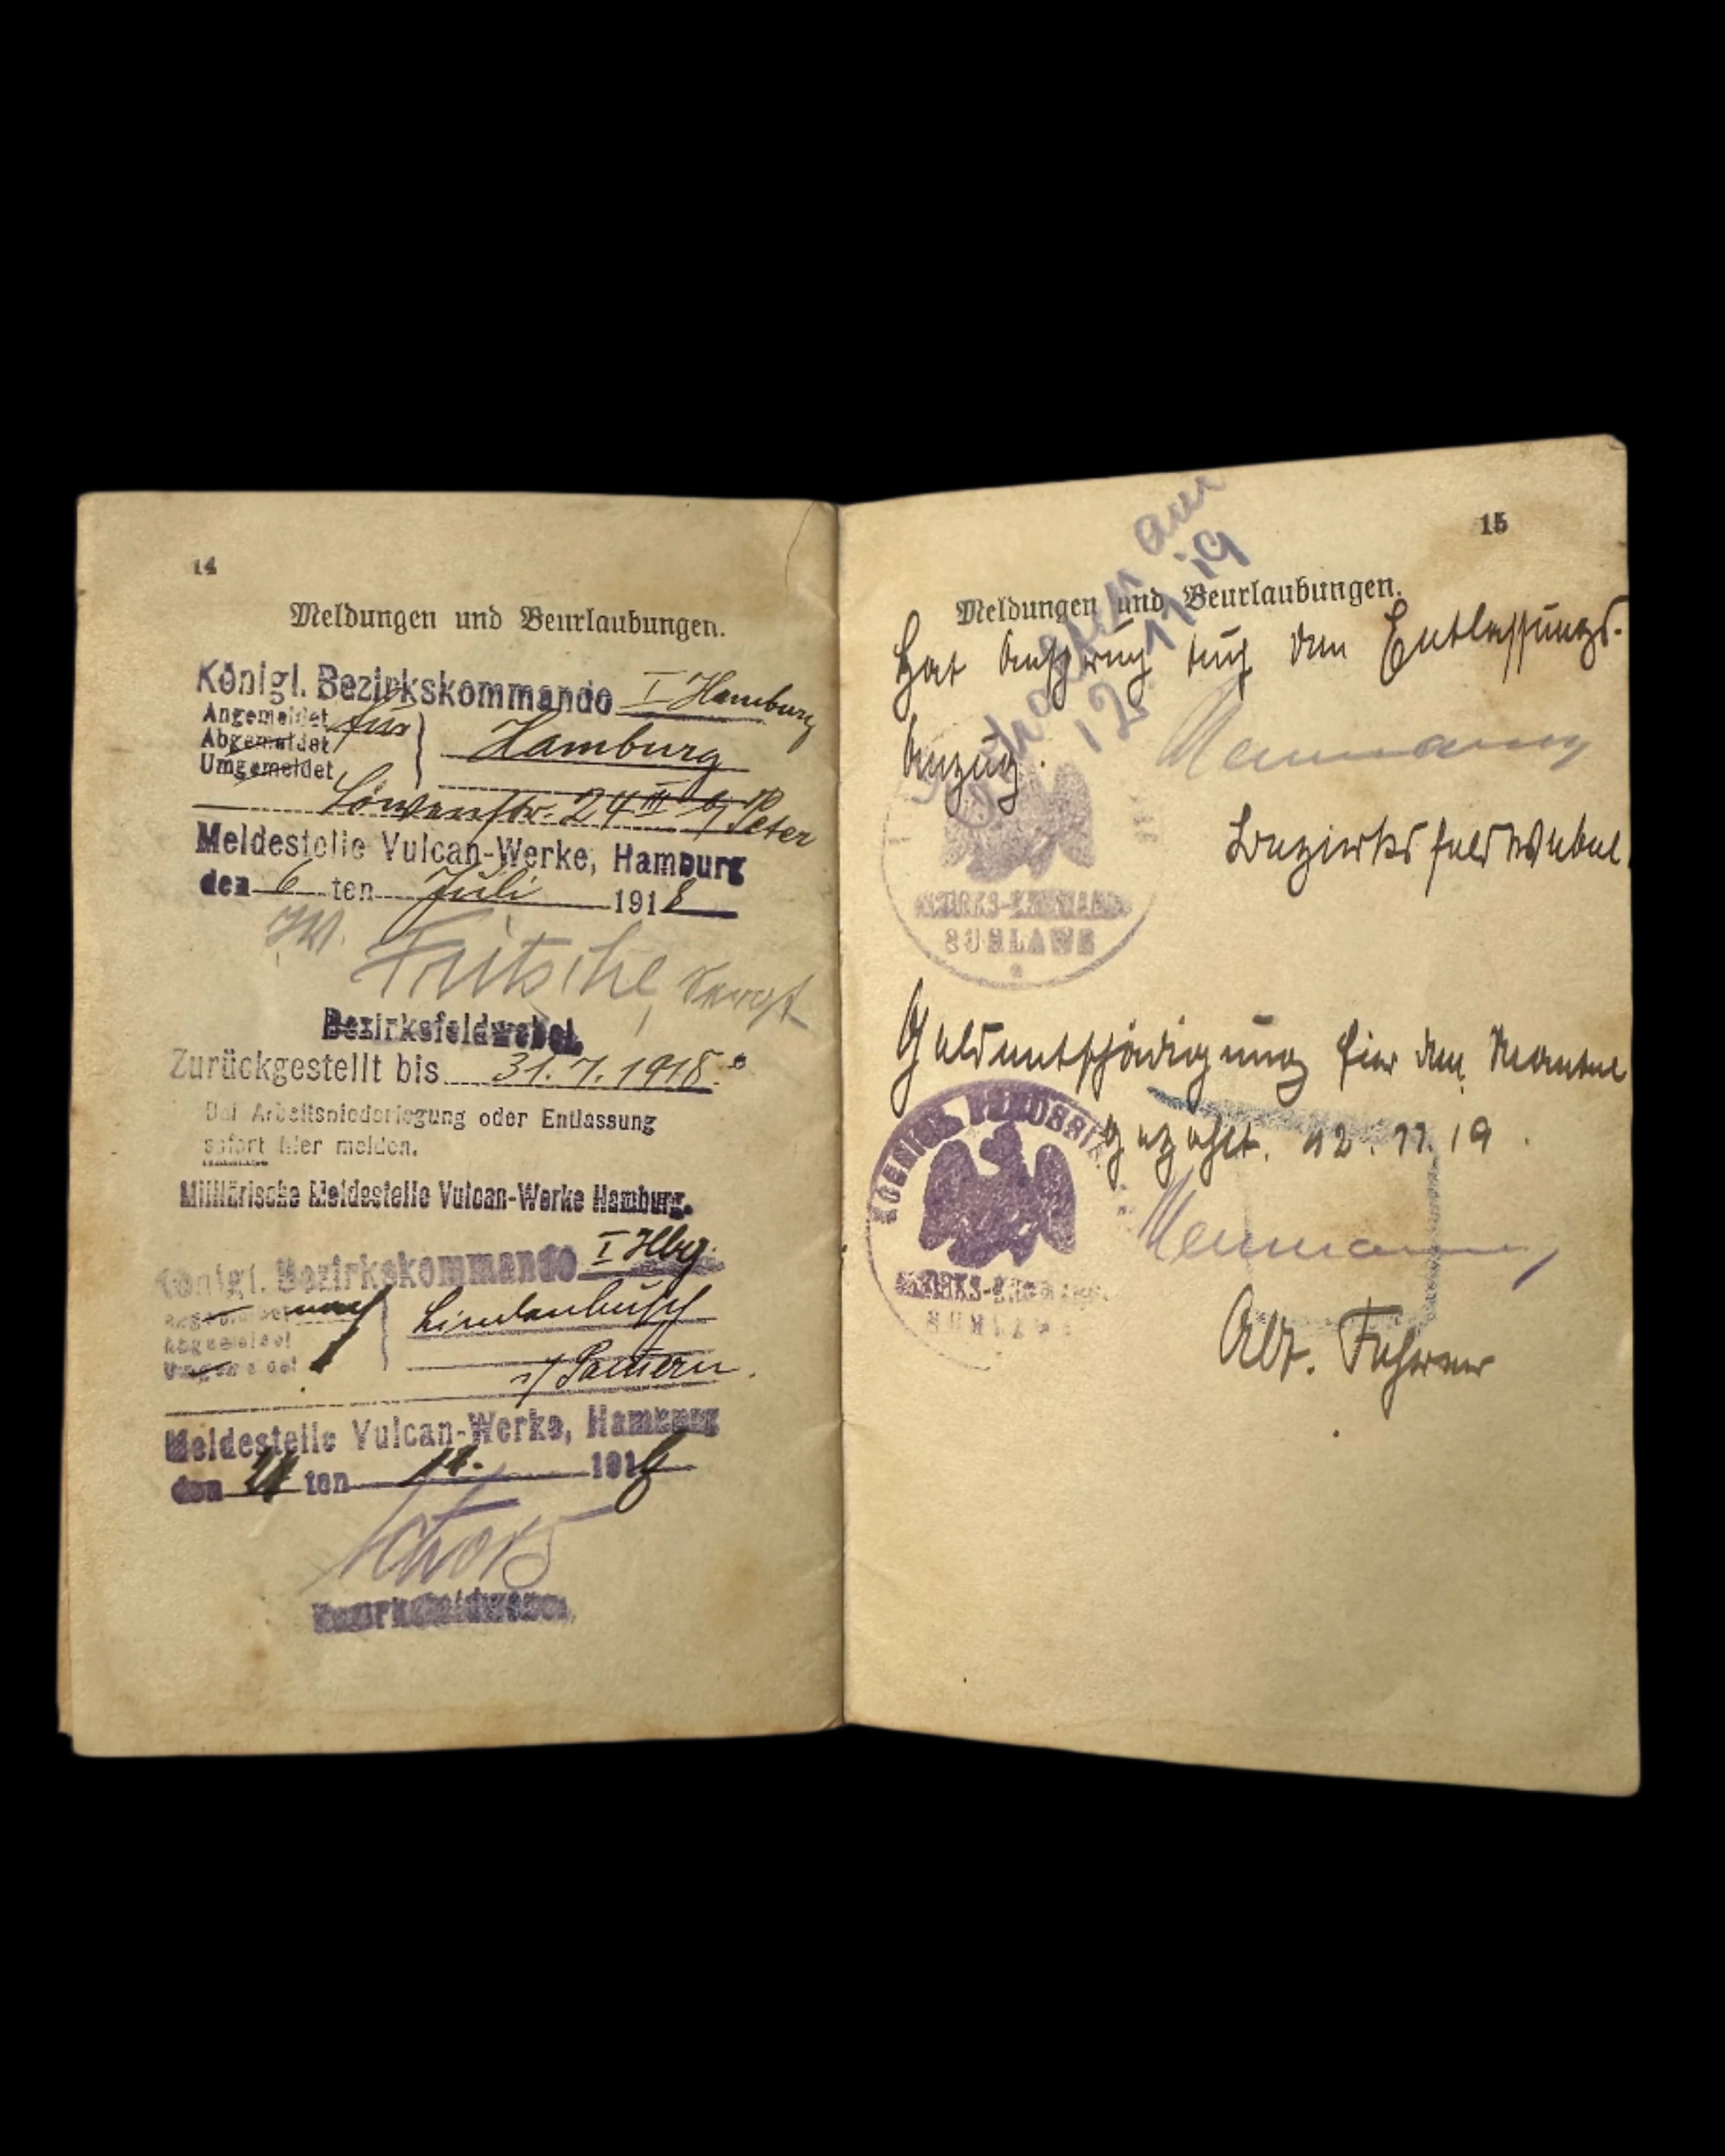 14
Meldungen und Beurlaubungen.
Königl. Bezirkskommando I Hamburg
Angemeldet
Abgemeldet
Umgemeldet
Hamburg
Löwenstr. 24 III b/ Peter
Meldestelle Vulcan-Werke, Hamburg
den 6 ten Juli 1918
I.V. Fritsche, Sergt
Bezirksfeldwebel.
Zurückgestellt bis 31.7.1918.
Bei Arbeitsniederlegung oder Entlassung
sofort hier melden.
Militärische Meldestelle Vulcan-Werke Hamburg.
Königl. Bezirkskommando I Hbg.
Angemeldet nach
Abgemeldet
Umgemeldet
Lindenbusch
Meldestelle Vulcan-Werke, Hamburg
den ten 11. 1918
Bezirksfeldwebel.
15
am
12. 11 19
Meldungen und Beurlaubungen.
Hat Anspruch auf den Entlassungs-
Anzug.
Bezirksfeldwebel.
BEZIRKS-KOMMANDO
Geldentschädigung für den Mantel
gezahlt. 12. 11. 19.
BEZIRKS-KOMMANDO